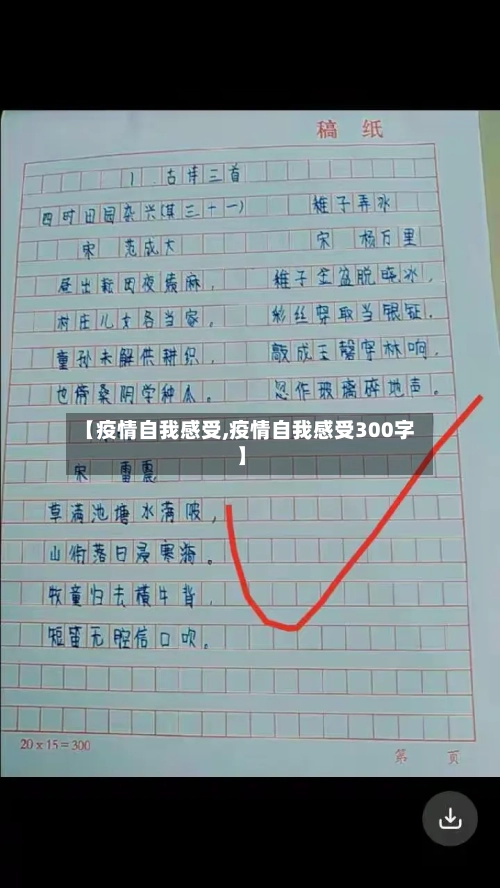 稿 纸
1 古诗三首
四时田园杂兴(其三十一)
宋 范成大
昼出耘田夜绩麻，
村庄儿女各当家，
童孙未解供耕织，
也傍桑阴学种瓜。
稚子弄冰
宋 杨万里
稚子金盆脱晓冰，
彩丝穿取当银钲。
敲成玉磬穿林响，
忽作玻璃碎地声。
【疫情自我感受,疫情自我感受300字
】
宋 雷震
草满池塘水满陂，
山衔落日浸寒漪。
牧童归去横牛背，
短笛无腔信口吹。
20 x 15 = 300
第 页